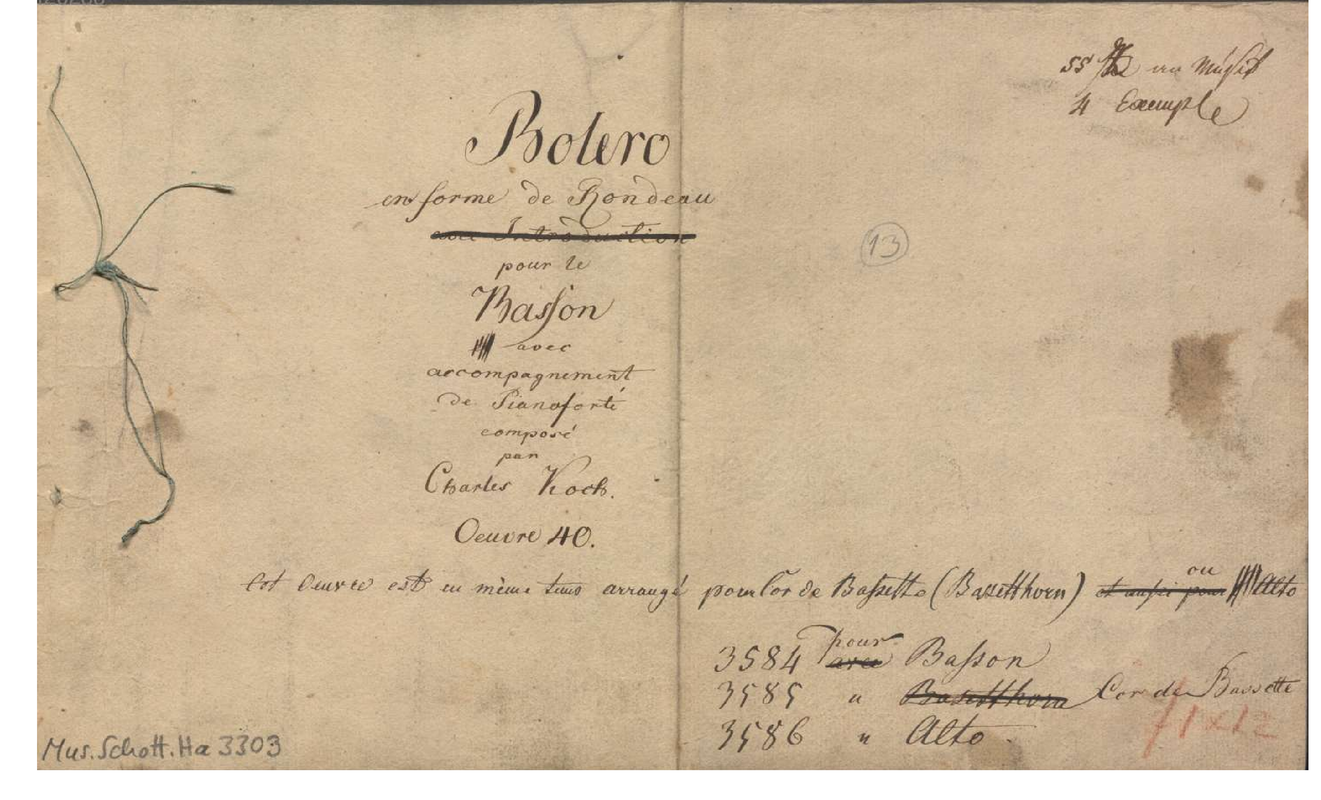 4 Exempl
Bolero
en forme de Rondeau
avec Introduction
13
pour le
Basson
avec
accompagnement
de Pianoforté
composé
par
Charles Koch.
Oeuvre 40.
Cet Oeuvre est en même tems arrangé pour Cor de Bassette (Bassetthorn) et aussi pour ou Alto
3584 avec pour Basson
3585 " Bassetthorn Cor de Bassette
3586 " Alto
Mus.Schott.Ha 3303